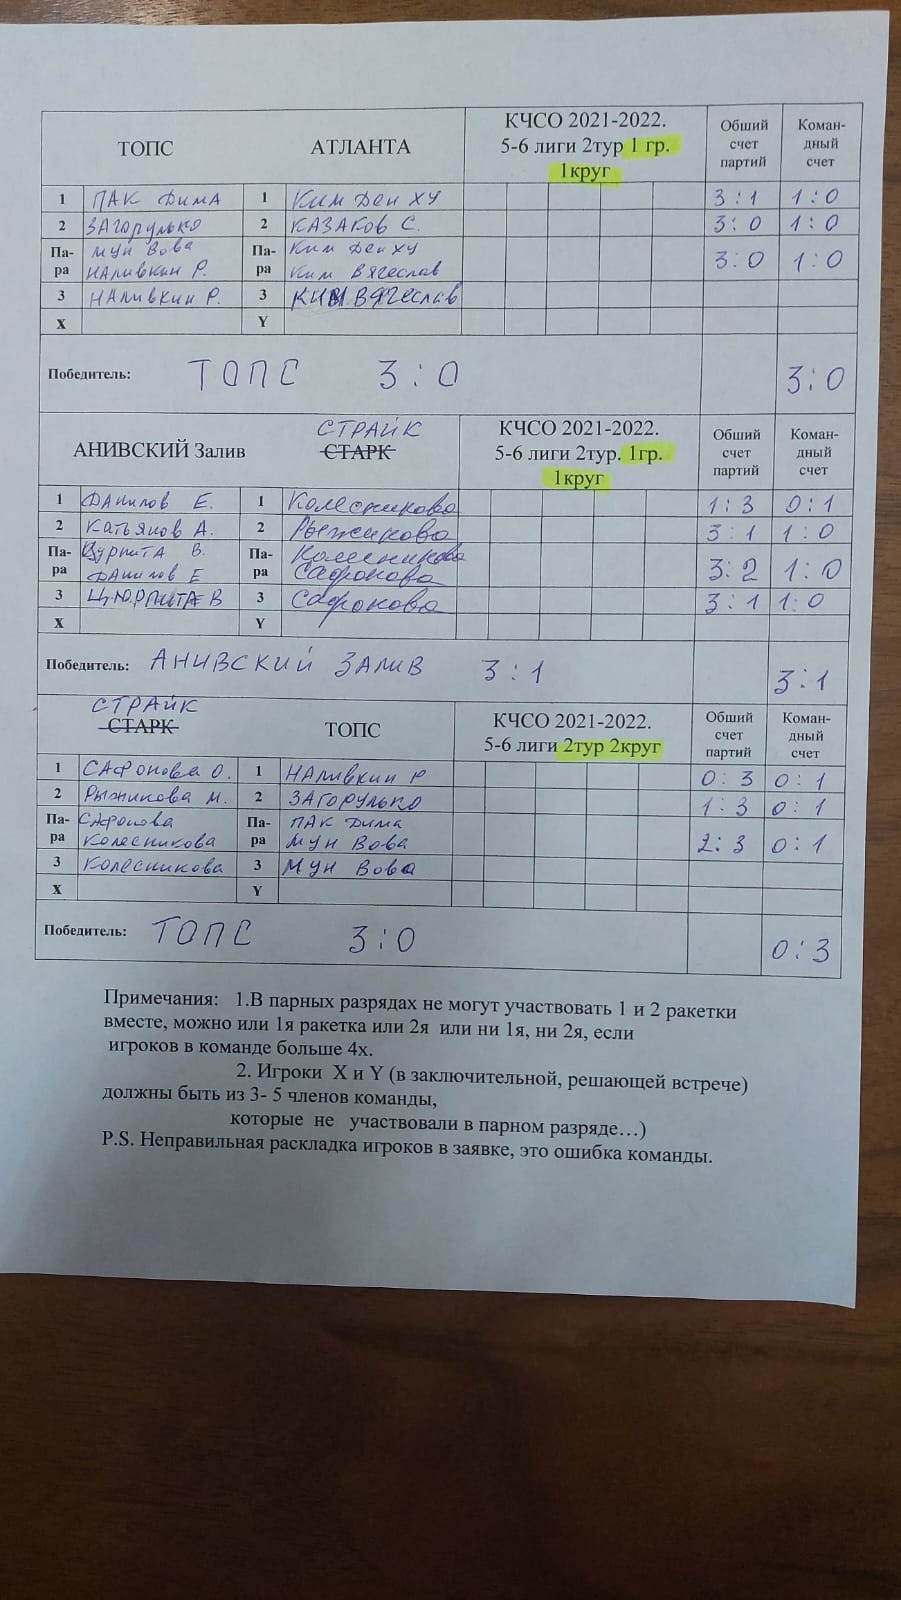 ТОПС АТЛАНТА КЧСО 2021-2022. 5-6 лиги 2тур 1 гр. 1круг Обший счет партий Коман-дный счет
1 ПАК Дима 1 Ким Ден Ху 3:1 1:0
2 ЗАГОРУЛЬКО 2 КАЗАКОВ С. 3:0 1:0
Па-ра Мун Вова Па-ра Ким Ден Ху 3:0 1:0
НАЛИВКИН Р. Ким Вячеслав
3 НАЛИВКИН Р. 3 КИМ ВЯЧЕСЛАВ
X Y
Победитель: ТОПС 3:0 3:0
АНИВСКИЙ Залив СТРАЙК СТАРК КЧСО 2021-2022. 5-6 лиги 2тур. 1гр. 1круг Обший счет партий Коман-дный счет
1 Данилов Е. 1 Колесникова 1:3 0:1
2 Катьянов А. 2 Рыжикова 3:1 1:0
Па-ра В. Па-ра Колесникова 3:2 1:0
Данилов Е Сафонова
3 В 3 Сафонова 3:1 1:0
X Y
Победитель: АНИВСКИЙ ЗАЛИВ 3:1 3:1
СТРАЙК СТАРК ТОПС КЧСО 2021-2022. 5-6 лиги 2тур 2круг Обший счет партий Коман-дный счет
1 САФОНОВА О. 1 НАЛИВКИН Р 0:3 0:1
2 Рыжикова М. 2 ЗАГОРУЛЬКО 1:3 0:1
Па-ра САФОНОВА Па-ра ПАК Дима 2:3 0:1
Колесникова Мун Вова
3 Колесникова 3 Мун Вова
X Y
Победитель: ТОПС 3:0 0:3
Примечания: 1.В парных разрядах не могут участвовать 1 и 2 ракетки
вместе, можно или 1я ракетка или 2я или ни 1я, ни 2я, если
игроков в команде больше 4х.
2. Игроки X и Y (в заключительной, решающей встрече)
должны быть из 3- 5 членов команды,
которые не участвовали в парном разряде…)
P.S. Неправильная раскладка игроков в заявке, это ошибка команды.